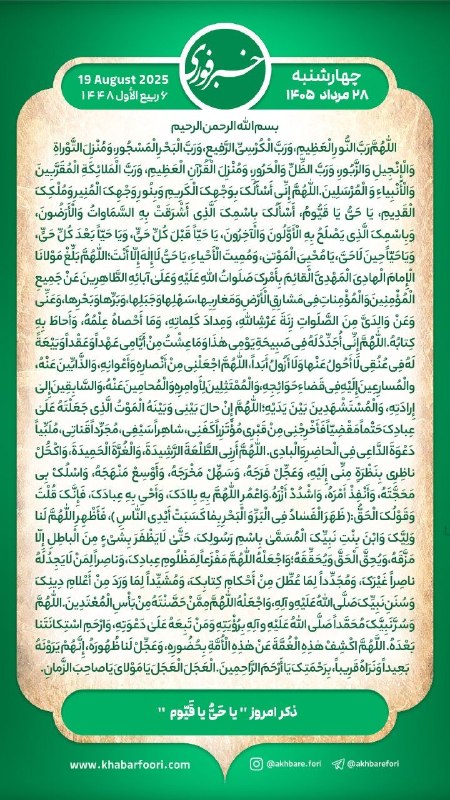 خبرفوری
چهارشنبه
۲۸ مرداد ۱۴۰۵
19 August 2025
۶ ربیع الأول ۱۴۴۸
بسم الله الرحمن الرحیم
اللّهُمَّ رَبَّ النُّورِ الْعَظِیمِ، وَرَبَّ الْکُرْسِیِّ الرَّفِیعِ، وَرَبَّ الْبَحْرِ الْمَسْجُورِ، وَمُنْزِلَ التَّوْراةِ
وَالْإِنْجِیلِ وَالزَّبُورِ، وَرَبَّ الظِّلِّ وَالْحَرُورِ، وَمُنْزِلَ الْقُرْآنِ الْعَظِیمِ، وَرَبَّ الْمَلائِکَةِ الْمُقَرَّبِینَ
وَالْأَنْبِیاءِ وَالْمُرْسَلِینَ. اللّهُمَّ إِنِّی أَسْأَلُکَ بِوَجْهِکَ الْکَرِیمِ وَبِنُورِ وَجْهِکَ الْمُنِیرِ وَمُلْکِکَ
الْقَدِیمِ، یَا حَیُّ یَا قَیُّومُ، أَسْأَلُکَ بِاسْمِکَ الَّذِی أَشْرَقَتْ بِهِ السَّمَاوَاتُ وَالْأَرَضُونَ،
وَبِاسْمِکَ الَّذِی یَصْلَحُ بِهِ الْأَوَّلُونَ وَالْآخِرُونَ، یَا حَیّاً قَبْلَ کُلِّ حَیٍّ، وَیَا حَیّاً بَعْدَ کُلِّ حَیٍّ،
وَیَا حَیّاً حِینَ لَاحَیَّ، یَا مُحْیِیَ الْمَوْتیٰ، وَمُمِیتَ الْأَحْیاءِ، یَا حَیُّ لَاإِلٰهَ إِلّا أَنْتَ؛ اللّهُمَّ بَلِّغْ مَوْلانَا
الْإِمامَ الْهادِیَ الْمَهْدِیَّ الْقائِمَ بِأَمْرِکَ صَلَواتُ اللهِ عَلَیْهِ وَعَلَیٰ آبائِهِ الطَّاهِرِینَ عَنْ جَمِیعِ
الْمُؤْمِنِینَ وَالْمُؤْمِناتِ فِی مَشارِقِ الْأَرْضِ وَمَغارِبِها، سَهْلِها وَجَبَلِها، وَبَرِّها وَبَحْرِها، وَعَنِّی
وَعَنْ وَالِدَیَّ مِنَ الصَّلَواتِ زِنَةَ عَرْشِ اللهِ، وَمِدادَ کَلِماتِهِ، وَمَا أَحْصاهُ عِلْمُهُ، وَأَحاطَ بِهِ
کِتابُهُ. اللّهُمَّ إِنِّی أُجَدِّدُ لَهُ فِی صَبِیحَةِ یَوْمِی هٰذَا وَمَا عِشْتُ مِنْ أَیَّامِی عَهْداً وَعَقْداً وَبَیْعَةً
لَهُ فِی عُنُقِی لَا أَحُولُ عَنْها وَلَا أَزُولُ أَبَداً. اللّهُمَّ اجْعَلْنِی مِنْ أَنْصارِهِ وَأَعْوانِهِ، وَالذَّابِّینَ عَنْهُ،
وَالْمُسارِعِینَ إِلَیْهِ فِی قَضاءِ حَوَائِجِهِ، وَالْمُمْتَثِلِینَ لِأَوامِرِهِ وَالْمُحامِینَ عَنْهُ، وَالسَّابِقِینَ إِلیٰ
إِرادَتِهِ، وَالْمُسْتَشْهَدِینَ بَیْنَ یَدَیْهِ؛ اللّهُمَّ إِنْ حالَ بَیْنِی وَبَیْنَهُ الْمَوْتُ الَّذِی جَعَلْتَهُ عَلَیٰ
عِبادِکَ حَتْماً مَقْضِیّاً فَأَخْرِجْنِی مِنْ قَبْرِی مُؤْتَزِراً کَفَنِی، شاهِراً سَیْفِی، مُجَرِّداً قَناتِی، مُلَبِّیاً
دَعْوَةَ الدَّاعِی فِی الْحاضِرِ وَالْبادِی. اللّهُمَّ أَرِنِی الطَّلْعَةَ الرَّشِیدَةَ، وَالْغُرَّةَ الْحَمِیدَةَ، وَاکْحَُلْ
ناظِرِی بِنَظْرَةٍ مِنِّی إِلَیْهِ، وَعَجِّلْ فَرَجَهُ، وَسَهِّلْ مَخْرَجَهُ، وَأَوْسِعْ مَنْهَجَهُ، وَاسْلُکْ بِی
مَحَجَّتَهُ، وَأَنْفِذْ أَمْرَهُ، وَاشْدُدْ أَزْرَهُ، وَاعْمُرِ اللّهُمَّ بِهِ بِلادَکَ، وَأَحْیِ بِهِ عِبادَکَ، فَإِنَّکَ قُلْتَ
وَقَوْلُکَ الْحَقُّ: (ظَهَرَ الْفَسَادُ فِی الْبَرِّ وَالْبَحْرِ بِمَا کَسَبَتْ أَیْدِی النَّاسِ)، فَأَظْهِرِ اللّهُمَّ لَنا
وَلِیَّکَ وَابْنَ بِنْتِ نَبِیِّکَ الْمُسَمَّیٰ بِاسْمِ رَسُولِکَ، حَتَّیٰ لَا یَظْفَرَ بِشَیْءٍ مِنَ الْباطِلِ إِلّا
مَزَّقَهُ، وَیُحِقَّ الْحَقَّ وَیُحَقِّقَهُ؛ وَاجْعَلْهُ اللّهُمَّ مَفْزَعاً لِمَظْلُومِ عِبادِکَ، وَناصِراً لِمَنْ لَایَجِدُ لَهُ
ناصِراً غَیْرَکَ، وَمُجَدِّداً لِمَا عُطِّلَ مِنْ أَحْکامِ کِتابِکَ، وَمُشَیِّداً لِمَا وَرَدَ مِنْ أَعْلامِ دِینِکَ
وَسُنَنِ نَبِیِّکَ صَلَّی اللهُ عَلَیْهِ وَآلِهِ، وَاجْعَلْهُ اللّهُمَّ مِمَّنْ حَصَّنْتَهُ مِنْ بَأْسِ الْمُعْتَدِینَ. اللّهُمَّ
وَسُرَّ نَبِیَّکَ مُحَمَّداً صَلَّی اللهُ عَلَیْهِ وَآلِهِ بِرُؤْیَتِهِ وَمَنْ تَبِعَهُ عَلَیٰ دَعْوَتِهِ، وَارْحَمِ اسْتِکانَتَنا
بَعْدَهُ. اللّهُمَّ اکْشِفْ هٰذِهِ الْغُمَّةَ عَنْ هٰذِهِ الْأُمَّةِ بِحُضُورِهِ، وَعَجِّلْ لَنا ظُهُورَهُ، إِنَّهُمْ یَرَوْنَهُ
بَعِیداً وَنَرَاهُ قَرِیباً، بِرَحْمَتِکَ یَا أَرْحَمَ الرَّاحِمِینَ. الْعَجَلَ الْعَجَلَ یَا مَوْلایَ یَا صاحِبَ الزَّمانِ.
ذکر امروز " یا حَیُّ یا قَیّوم "
www.khabarfoori.com
@akhbare.fori
@akhbarefori